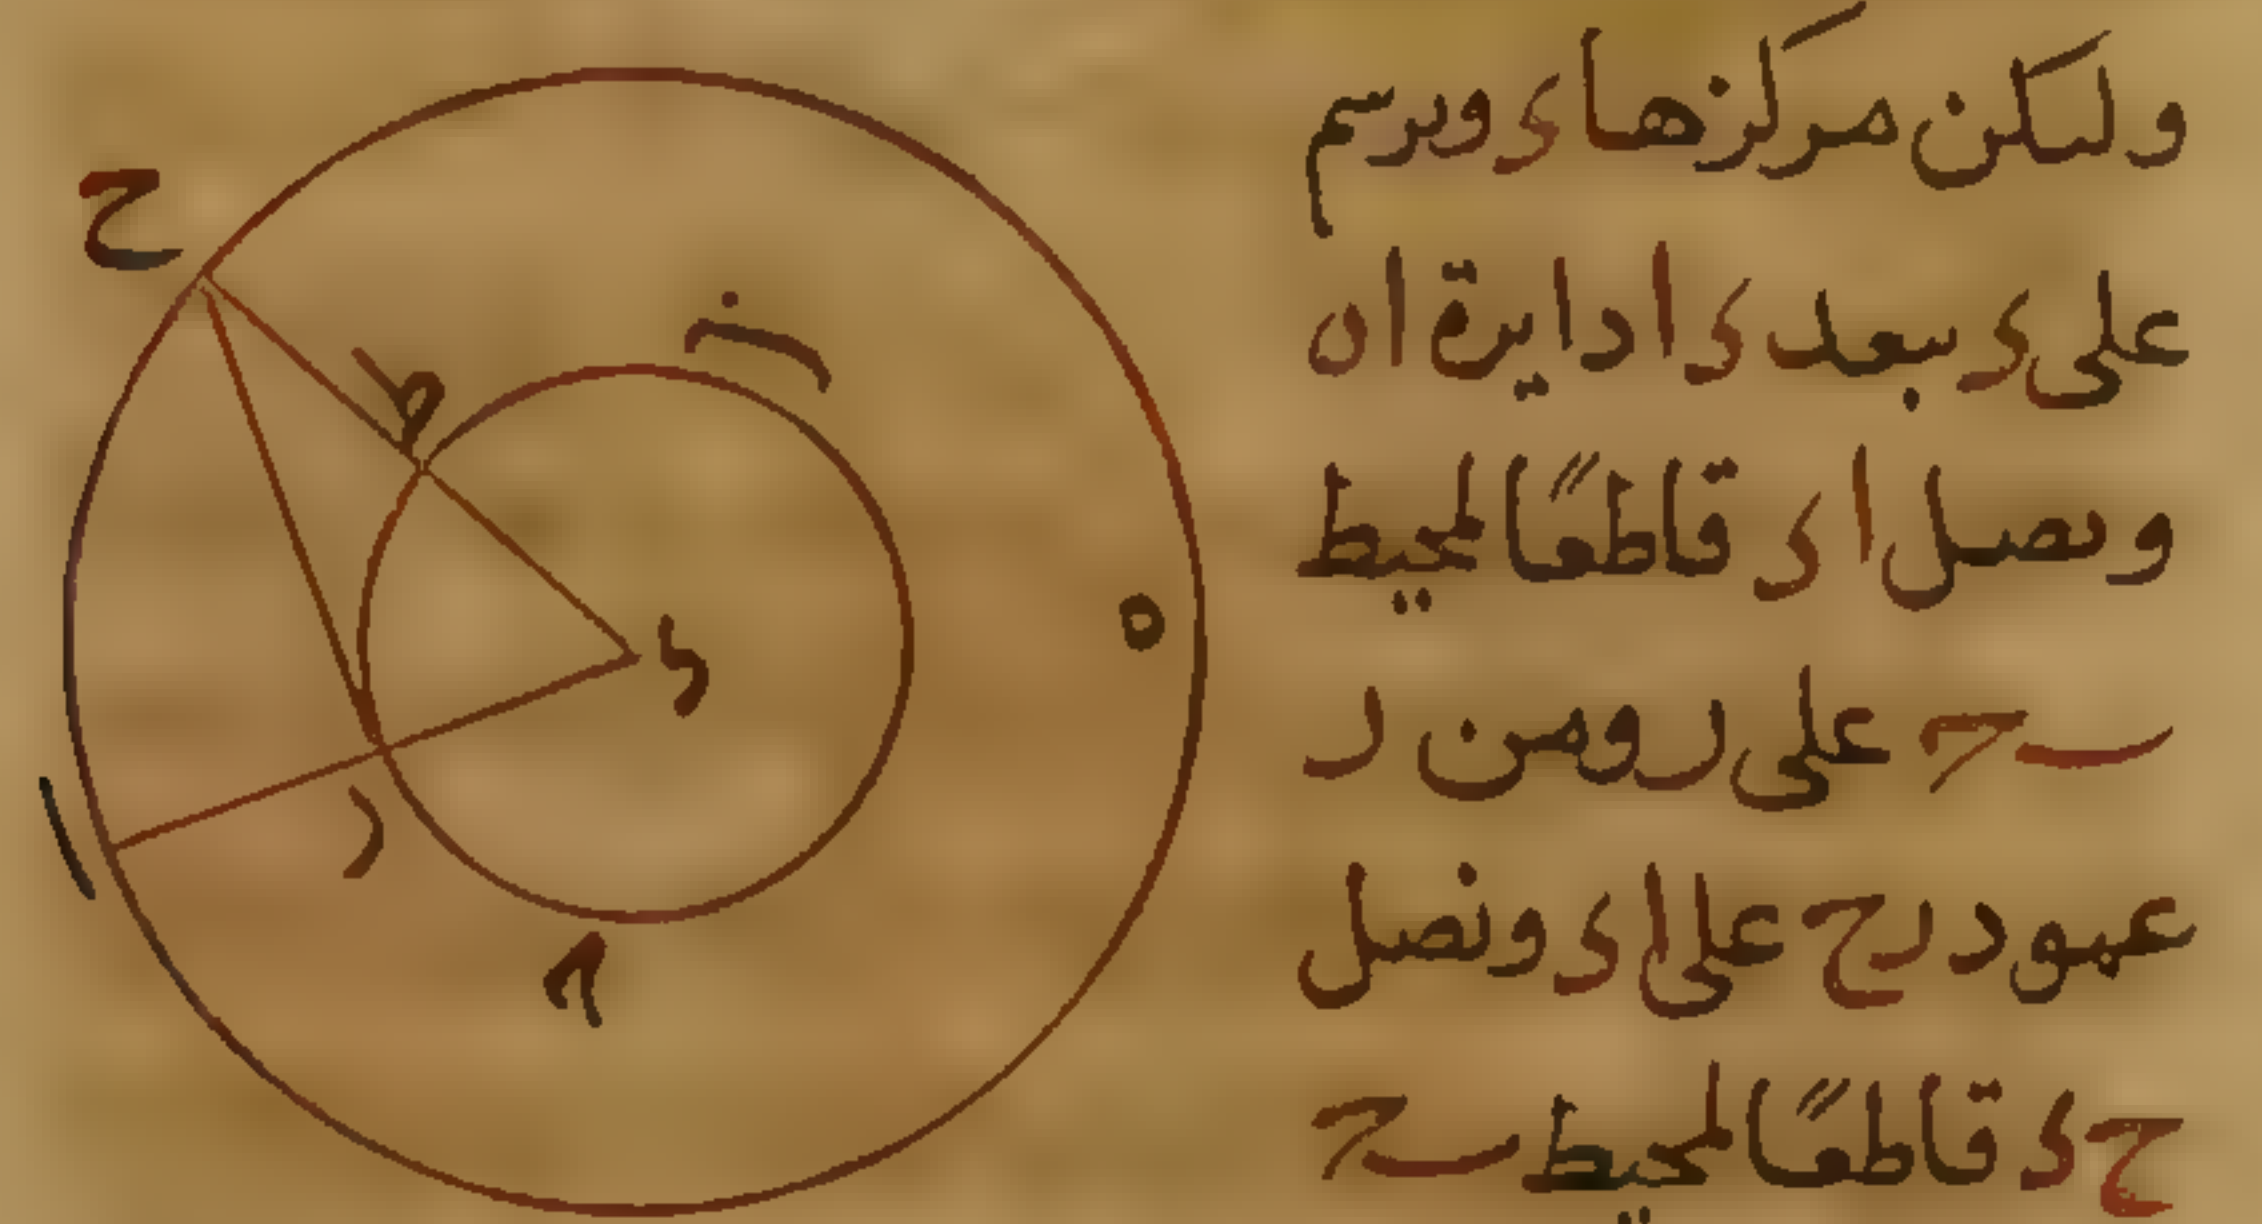 ولىكن مركزها ى ويرسم
على ى ىبعد ى ا دايرة ا ه
ونصل ا ى قاطعًا لمحيط
ٮ ح على ر ومن ر
عمود ر ح على ا ى ونصل
ح ى قاطعًا لمحيط ٮ ح
ح
ط
ٮ
ى
ه
ا
ر
ح